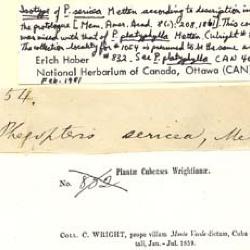 Isotype of P. sericea Metten according to description in
the protologue [Mem. Amer. Acad. 8(1): 208, 1861]. This co
was mixed with that of P. platyphylla Metten. (Wright #
The collection locality for #1054 is presumed to be the same a
Erich Haber # 832. See P. platyphylla CAN 40
National Herbarium of Canada, Ottawa (CAN)
Feb. 1981
54.
Phegopteris sericea, Me
Plantæ Cubenses Wrightianæ.
No. 882
COLL. C. WRIGHT, prope villam Monte Verde dictam, Cuba
tali, Jan.-Jul. 1859.